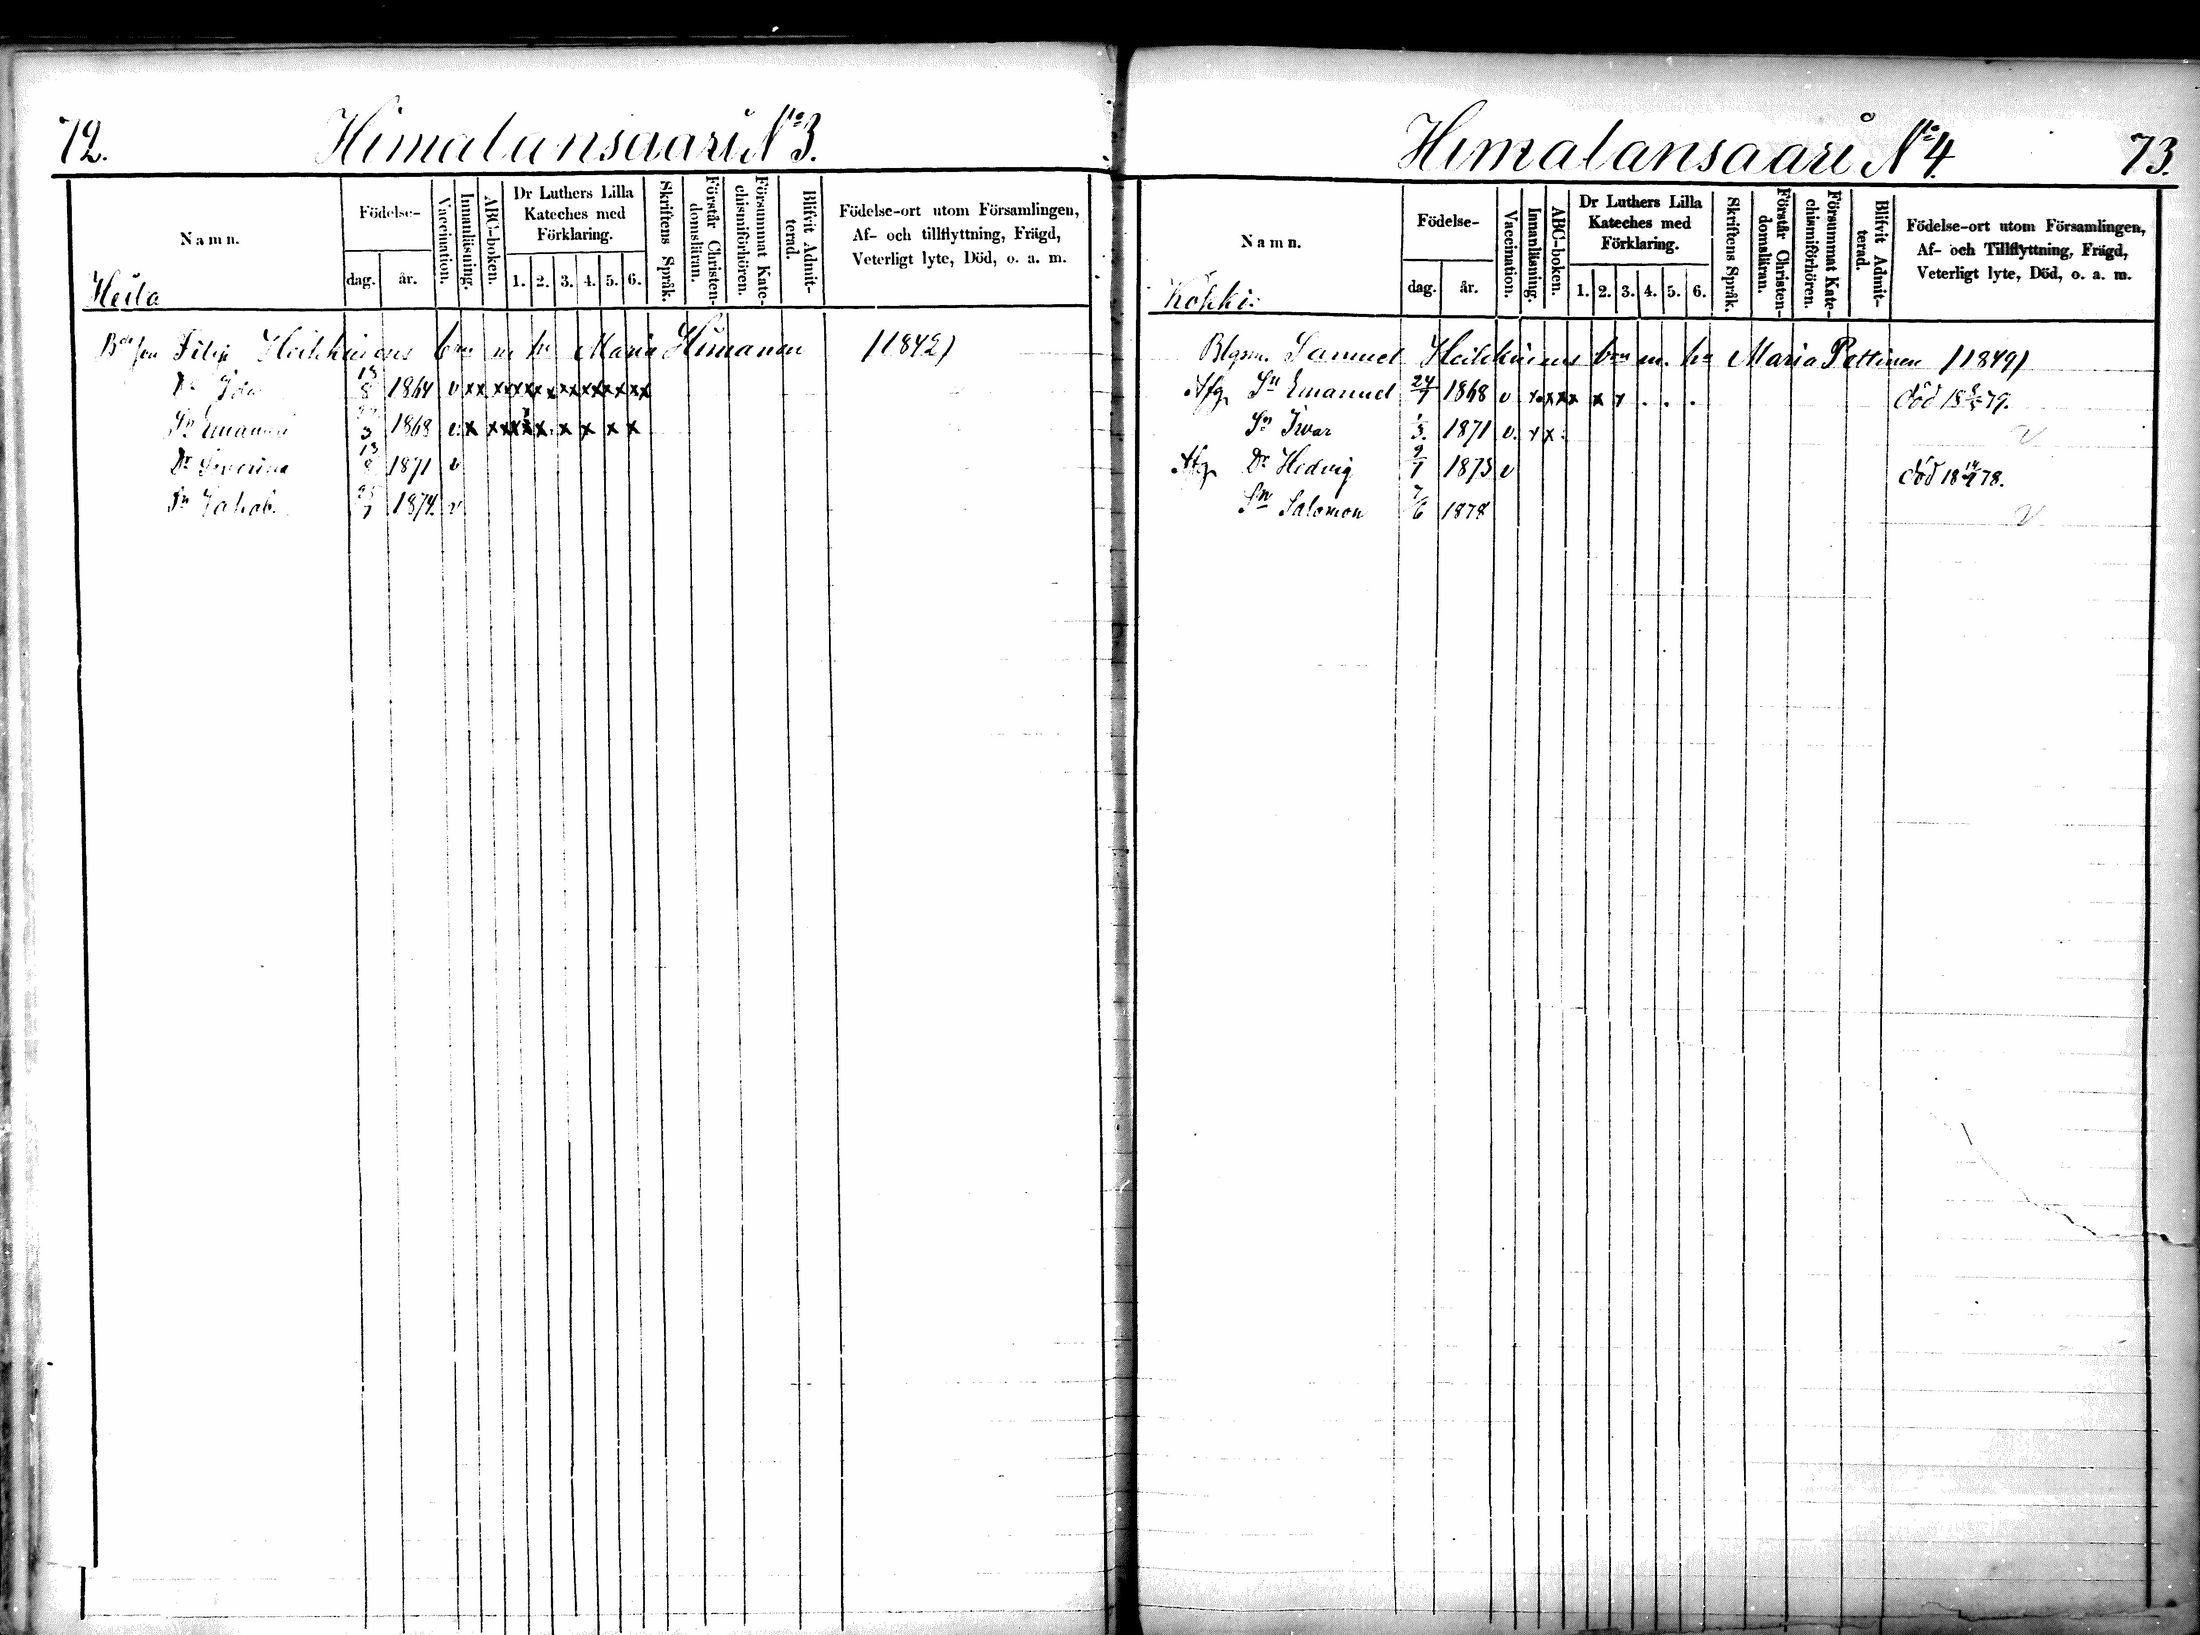 72.
Himalansaari No 3.
Namn.
Födelse-
dag. år.
Vaccination.
Innanläsning.
ABC-boken.
Dr Luthers Lilla Kateches med Förklaring.
1. 2. 3. 4. 5. 6.
Skriftens Språk.
Förstår Christendomsläran.
Försummat Katechismiförhören.
Blifvit Admitterad.
Födelse-ort utom Församlingen,
Af- och tillflyttning, Frägd,
Veterligt lyte, Död, o. a. m.
Heila
Filip Heikkinens Maria Himanen /1842/
Dr Ida 13/8 1864 v x x x x x x x x x x x x x x
Sn Emanuel 1868 v. x x x x x x x x x
Dr Severina 1871 v
Sn Jakob. 1874. v
Himalansaari No 4.
73.
Namn.
Födelse-
dag. år.
Vaccination.
Innanläsning.
ABC-boken.
Dr Luthers Lilla Kateches med Förklaring.
1. 2. 3. 4. 5. 6.
Skriftens Språk.
Förstår Christendomsläran.
Försummat Katechismiförhören.
Blifvit Admitterad.
Födelse-ort utom Församlingen,
Af- och Tillflyttning, Frägd,
Veterligt lyte, Död, o. a. m.
Kokki:
Samuel Heikkinens m. Maria Pettinen /1849/
Afg. Sn Emanuel 24/7 1868 v x x x x x x . . . död 18 79.
Sn Ivar 1/3. 1871 v. x x . v
Afg Dr Hedvig 9/1 1875 v död 18 78.
Sn Salomon 7/6 1878 v